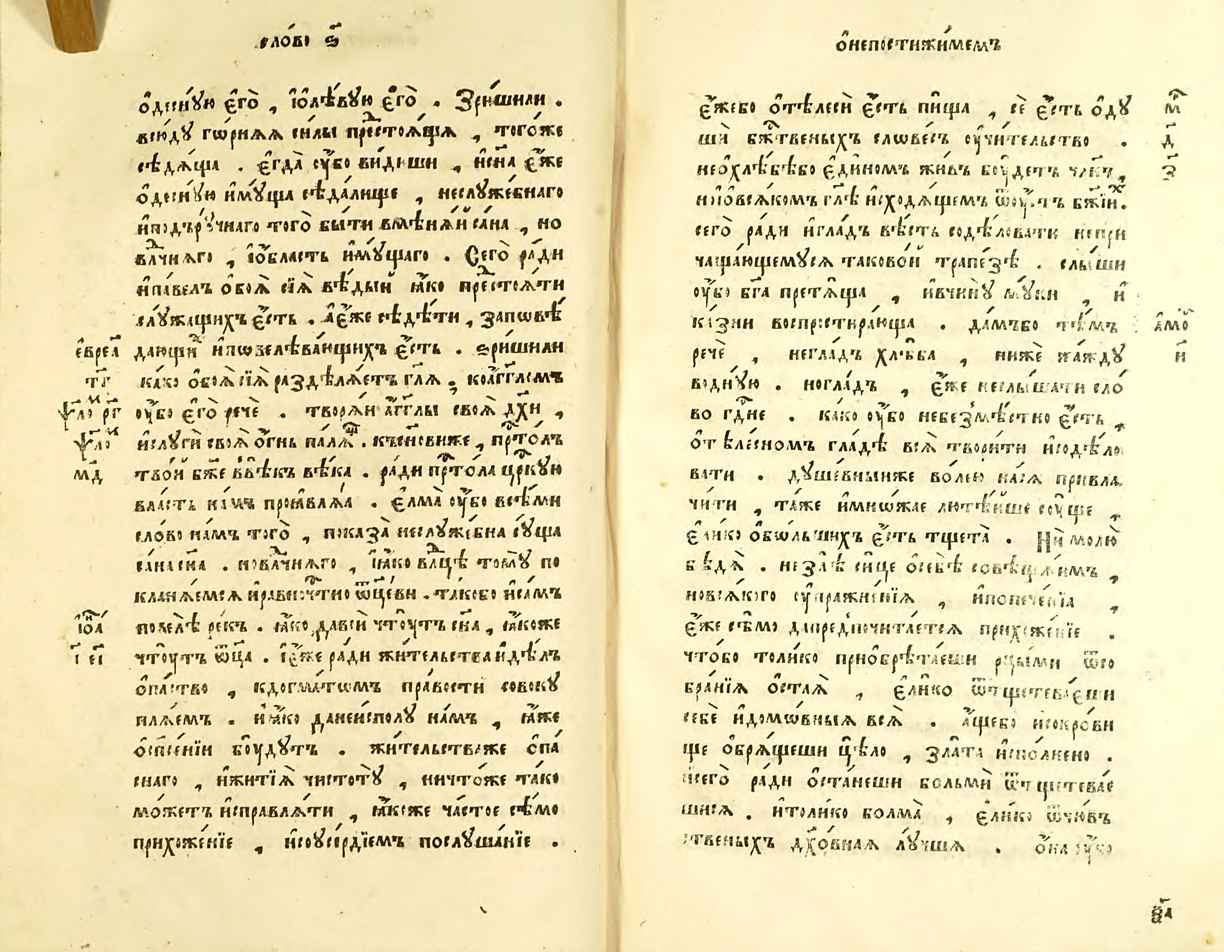 сло́во ѕ҃
ѻ҆десну́ю є҆го̀ , і҆ѻ҆лѣ́вую є҆го̀ . Зри́шили .
всю́ду го́рнѧѧ си́лы престоѧ́щѧ , того́же
сѣдѧ́ща . є҆гда̀ ѹ҆́бо ви́диши , и҆сн҃а є҆́же
ѻ҆десну́ю и҆мꙋ́ща сѣда́лище , неслꙋже́бнаго
и҆подърꙋ́чнаго того̀ бы́ти вмѣнѧ́й са́на , но
влⷣчнѧго , і҆ѻ҆́бласть и҆мꙋ́щаго . Сего̀ ра́ди
и҆па́велъ ѻ҆боѧ̀ сїѧ̀ вѣ́дый ꙗ҆́ко престоѧ́ти
слꙋжа́щихъ є҆́сть . а҆є҆́же сѣдѣ́ти , запѡвѣ
є҆вреа
дающи и҆повелѣва́ющихъ є҆́сть . зри́шили
г҃
ка́ко ѻ҆боѧ̀ сїѧ̀ раздѣлѧ́етъ гл҃ѧ , коа҆́гг҃лѡмъ
ѱло рг҃
ѹ҆́бо є҆го̀ речѐ . творѧ́й а҆́гг҃лы своѧ̀ дх҃и ,
ѱло
и҆слꙋгѝ своѧ̀ ѻ҆́гнь палѧ̀ . къс҃новиже , прⷭ҇то́лъ
мд҃
тво́й бж҃е ввѣ́къ вѣ́ка . ра́ди прⷭ҇то́ла црⷭ҇кую
вла́сть на́мъ проꙗвлѧ́ѧ . є҆лма̀ ѹ҆́бо всѣ́ми
сло́во на́мъ того̀ , показа̀ неслꙋже́бна сꙋ́ща
са́на сн҃а . новлⷣчнѧго , ꙗ҆́ко влⷣцѣ томꙋ̀ по
кланѧ́емсѧ и҆равноче́стно ѿц҃еви . та́кобо и҆са́мъ
і҆ѡа
повелѣ̀ ре́къ . ꙗ҆́ко да всѝ чтꙋ́тъ сн҃а , ꙗ҆́коже
г҃ є҃і
чтꙋ́тъ ѿц҃а . і҆є҆́же ра́ди жи́тельства и҆дѣ́лъ
ѻ҆па́ство , кдогма́томъ пра́вости совокꙋ
плѧ́емъ . и҆ꙗ҆́ко данеисполꙋ̀ на́мъ , ꙗ҆́же
ѻ҆спⷭ҇е́нїи бꙋ́дꙋтъ . жи́тельстваже ѻ҆па́
снаго , и҆житїѧ̀ чистотꙋ̀ , ничто́же та́ко
мо́жетъ и҆справлѧ́ти , ꙗ҆́коже ча́стое сѣ́мо
прихоже́нїе , и҆сѹсе́рдїемъ послꙋша́нїе .
ѻ҆непостижи́мемъ
є҆́жебо ѻ҆тѣлесѝ є҆́сть пи́ща , сѐ є҆́сть ѻ҆дꙋ
м҃
шѝ бж҃твеныхъ слове́съ ѹ҆чи́тельство .
д҃
неѻ҆хлѣ́бѣбо є҆ди́номъ жи́въ бꙋ́детъ чл҃къ ,
з҃
ноѡвсѧ́комъ гл҃ѣ и҆сходѧ́щемъ ѿѹ҆́стъ бж҃їи .
сего̀ ра́ди и҆гла́дъ вѣ́сть содѣ́ловати непри
чаща́ющемꙋсѧ таково́й трапе́зѣ . слы́ши
ѹ҆́бо бг҃а претѧ́ща , и҆вчинꙋ̀ мꙋ́ки , и҆
ка́зни воспростира́юща . да́мъбо тѣ́мъ
а҆мѡ
речѐ , негла́дъ хлѣ́ба , нижѐ жа́ждꙋ
и҃
во́днꙋю . ногла́дъ , є҆́же неслы́шати сло́
во гдⷭ҇не . ка́ко ѹ҆́бо небезмѣ́стно є҆́сть ,
ѻ҆тѣле́сномъ гла́дѣ всѧ̀ твори́ти и҆содѣло
вати . дꙋше́вныиже во́лею насѧ̀ привла
чи́ти , та́же и҆мно́жае лютѣ́йше сꙋ́ще ,
є҆ли́ко ѻ҆бо́льшихъ є҆́сть тщета̀ . Нѝ молю̀
сѧ . не злѣ̀ си́це ѻ҆себѣ̀ совѣща́имъ ,
новсѧ́кого сꙋпражне́нїѧ , и҆попече́нїѧ ,
є҆́же сѣ́мо дапредпочита́етсѧ прихоже́нїе .
что́бо толи́ко приѻ҆брѣта́еши рцы́ми ѿсо
бра́нїѧ ѻ҆ста́ѧ , є҆ли́ко ѿтщетева́еши
себѐ и҆домо́вныѧ всѧ̀ . а҆́щебо и҆сокро́ви
ще ѻ҆брѧ́щеши цѣ́ло , зла́та и҆спо́лнено .
и҆сего̀ ра́ди ѻ҆ста́неши бо́льми ѿтщетева́е
шисѧ . и҆толи́ко болма̀ , є҆ли́ко ѿчю́въ
ственыхъ дх҃о́внаѧ лꙋ́чшѧ . ѻ҆́на ѹ҆́бо